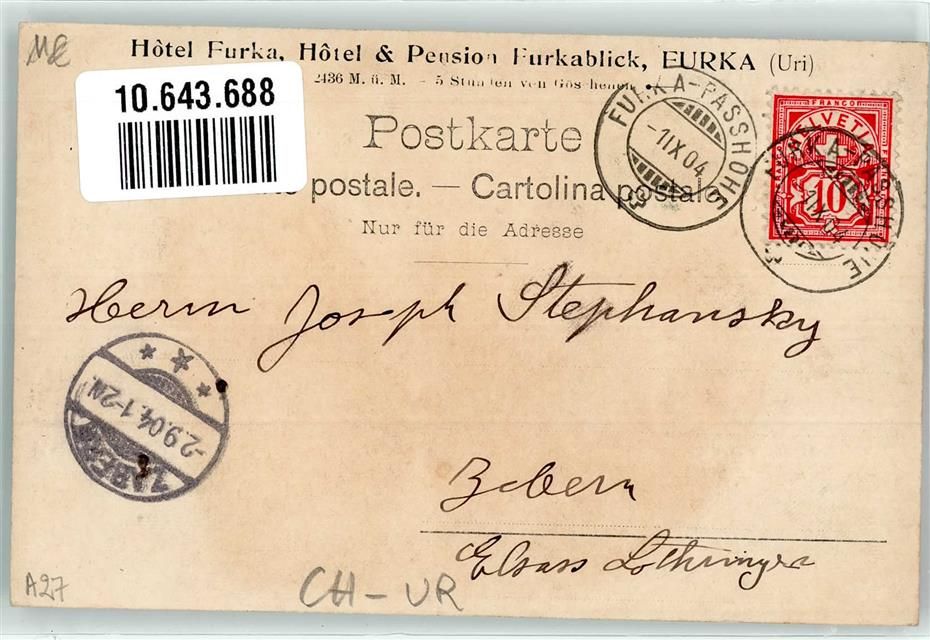 ME
Hôtel Furka, Hôtel & Pension Furkablick, FURKA (Uri)
2436 M. ü. M. - 5 Stunden von Göschenen.
10.643.688
Postkarte
postale. — Cartolina postale
Nur für die Adresse
FURKA-PASSHÖHE
-1 IX 04
FRANCO
HELVETIA
10
FURKA-PASSHÖHE
1 IX 04
Herrn Joseph Stephansky
ZABERN
-2.9.04.1-2N.
Zabern
Elsass Lothringen
A27
CH - UR